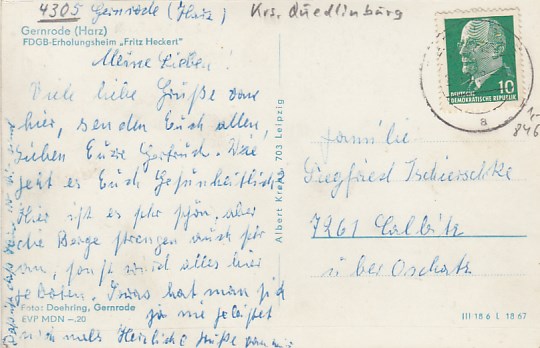 4305 Gernrode (Harz) Krs. Quedlinburg
Gernrode (Harz)
FDGB-Erholungsheim „Fritz Heckert"
Meine Lieben!
Viele liebe Grüße von
hier, senden Euch allen,
Eure Gertrud. Wie
geht es Euch Gesundheitlich
Hier ist es sehr schön, aber
die Berge strengen auch sehr
an, sonst wird alles hier
geboten. hat man sich
ja nie geleistet
Foto: Doehring, Gernrode
EVP MDN -.20
Herzliche Grüße von
Albert Kreh 703 Leipzig
10
DEUTSCHE
DEMOKRATISCHE REPUBLIK
a
Familie
Siegfried Tschierschke
7261 Calbitz
über Oschatz
III 18 6 L 18 67